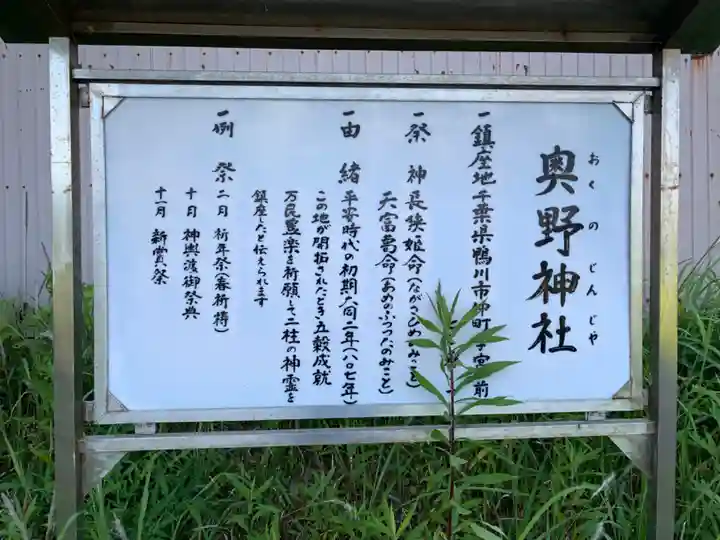 奥野神社
おくのじんじゃ
一鎮座地千葉県鴨川市仲町 字宮ノ前
一祭神 長狭姫命（ながさひめのみこと）
天富葛命（あめのふつつたのみこと）
一由緒 平安時代の初期大同二年（八〇七年）
この地が開拓されたとき五穀成就
万民豊楽を祈願して二柱の神霊を
鎮座したと伝えられます
一例祭 二月 祈年祭（春祈祷）
十月 神輿渡御祭典
十一月 新嘗祭